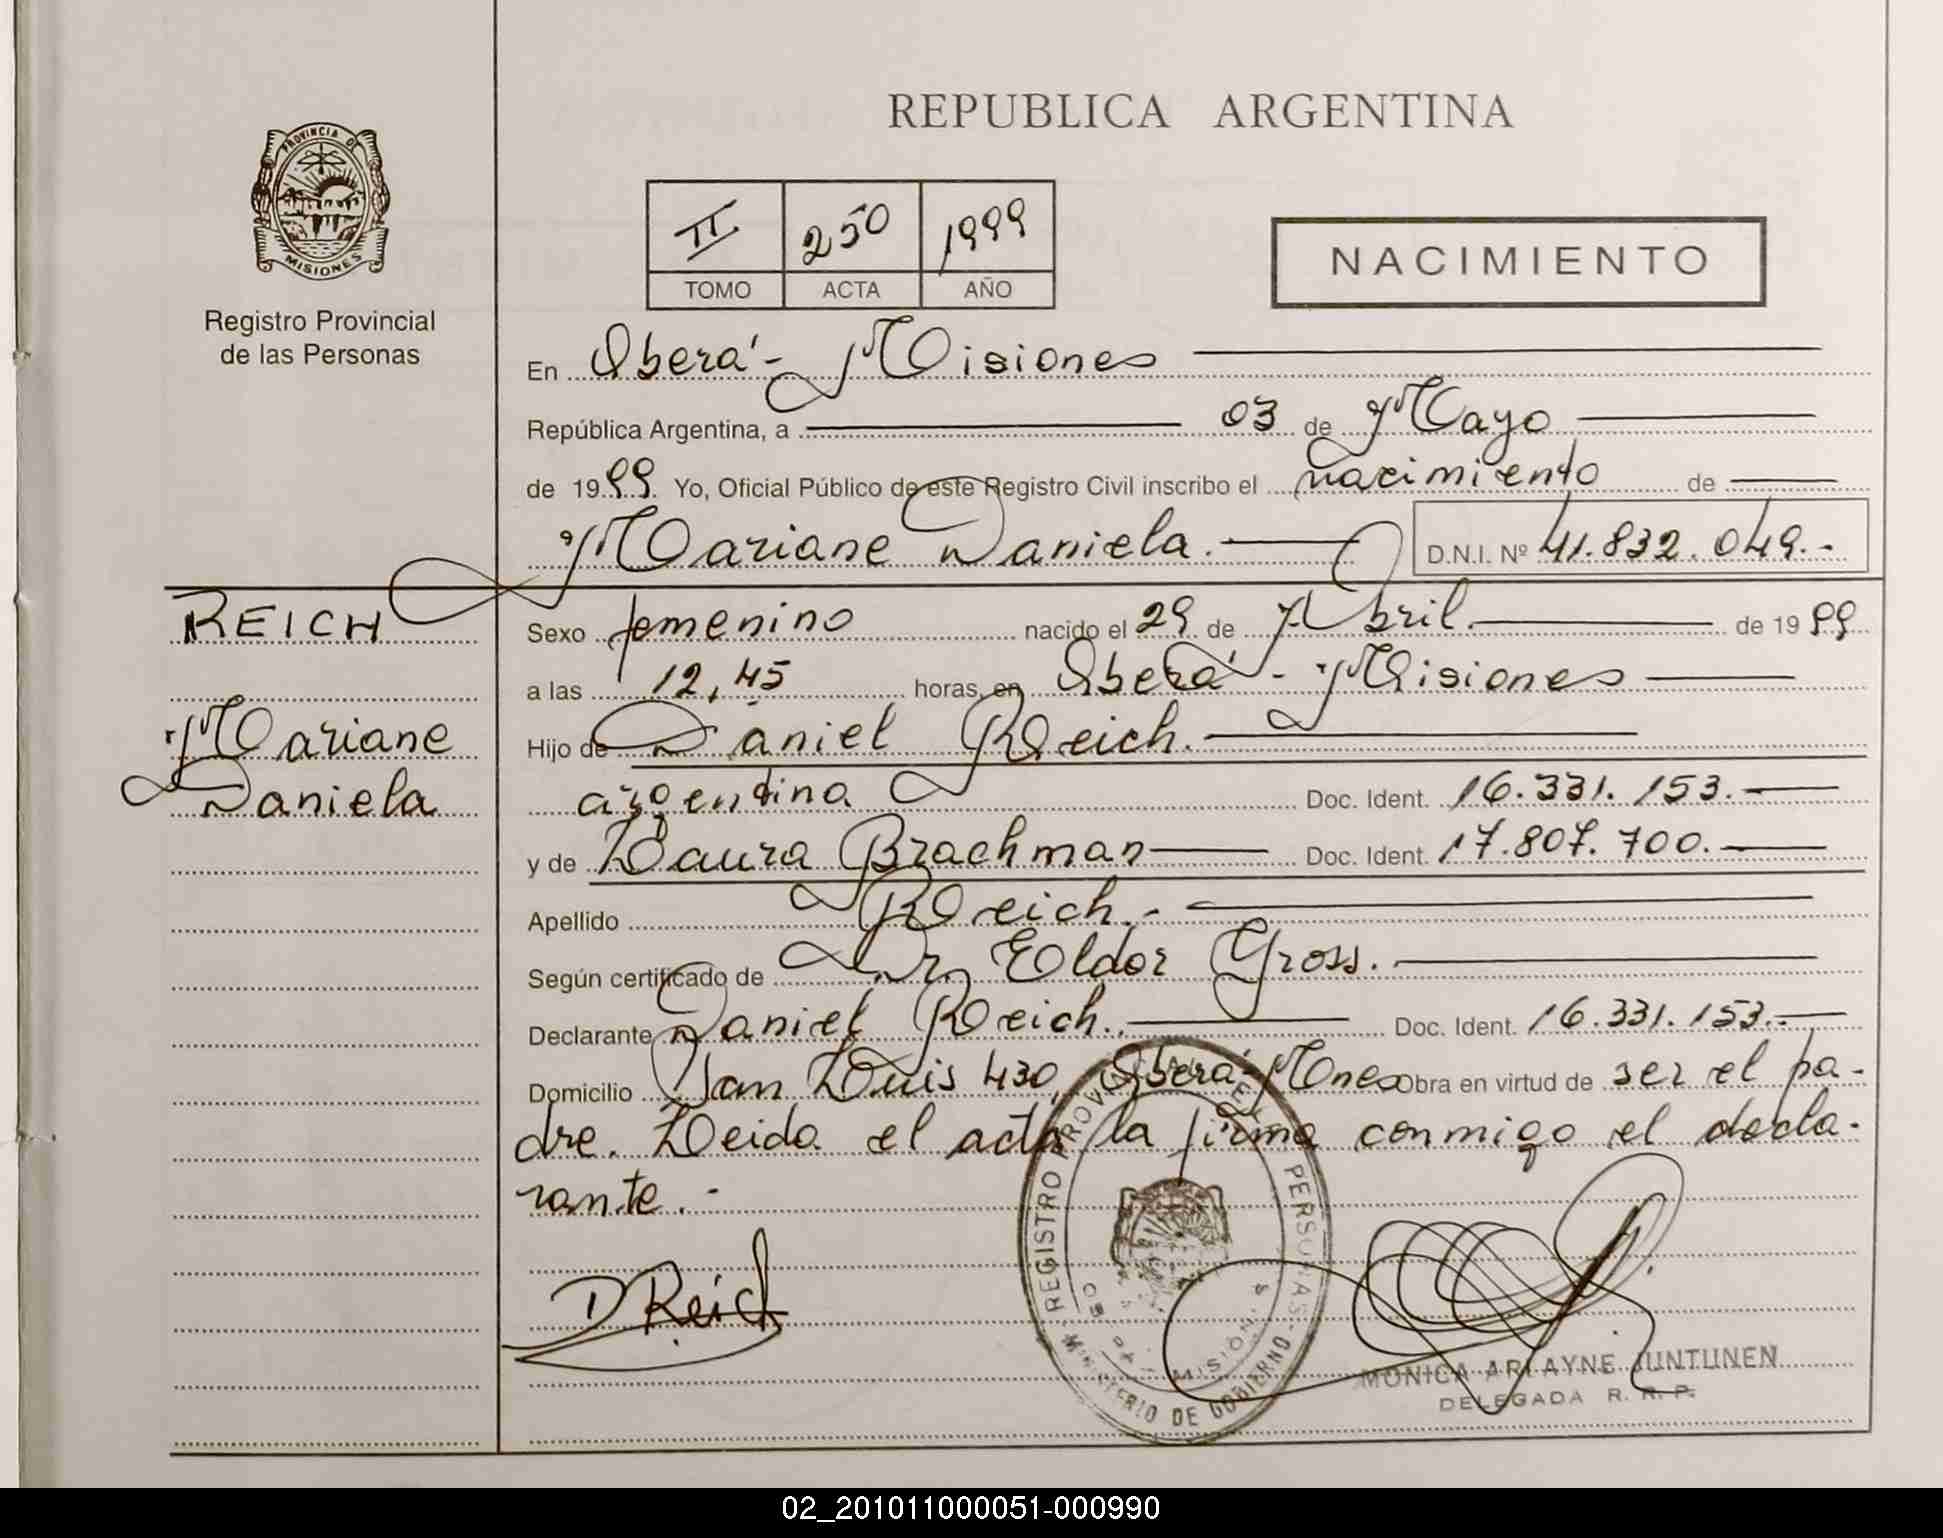 REPUBLICA ARGENTINA
PROVINCIA DE
MISIONES
Registro Provincial
de las Personas
II 250 1999
TOMO ACTA AÑO
NACIMIENTO
En Oberá - Misiones
República Argentina, a 03 de Mayo
de 1999. Yo, Oficial Público de este Registro Civil inscribo el nacimiento de
Mariane Daniela. D.N.I. Nº 41.832.049.-
REICH
Mariane
Daniela
Sexo femenino nacido el 29 de Abril. de 1999
a las 12,45 horas, en Oberá - Misiones
Hijo de Daniel Reich.
argentina Doc. Ident. 16.331.153.
y de Laura Brachman Doc. Ident. 17.807.700.
Apellido Reich.-
Según certificado de Dr. Eldor Gross.
Declarante Daniel Reich. Doc. Ident. 16.331.153.-
Domicilio San Luis 430, Oberá-Mnes Obra en virtud de ser el pa-
dre. Leida el acta, la firma conmigo el decla-
rante.-
D Reich
REGISTRO PROVINCIAL DE LAS PERSONAS
MINISTERIO DE GOBIERNO
MISIONES
MONICA ARLAYNE JUNTUNEN
DELEGADA R. R. P.
02_201011000051-000990